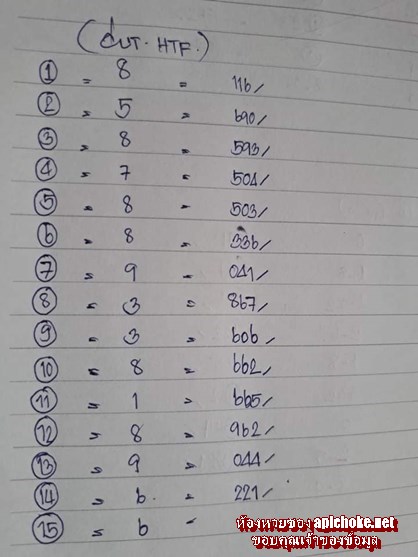 (dut. HTF.)
① = 8 = 116/
② = 5 = 690/
③ = 8 = 593/
④ = 7 = 504/
⑤ = 8 = 503/
⑥ = 8 = 336/
⑦ = 9 = 041/
⑧ = 3 = 867/
⑨ = 3 = 606/
⑩ = 8 = 662/
⑪ = 1 = 665/
⑫ = 8 = 962/
⑬ = 9 = 044/
⑭ = 6. = 221/
⑮ = 6 =
ห้องหวยซอง apichoke.net
ขอบคุณเจ้าของข้อมูล